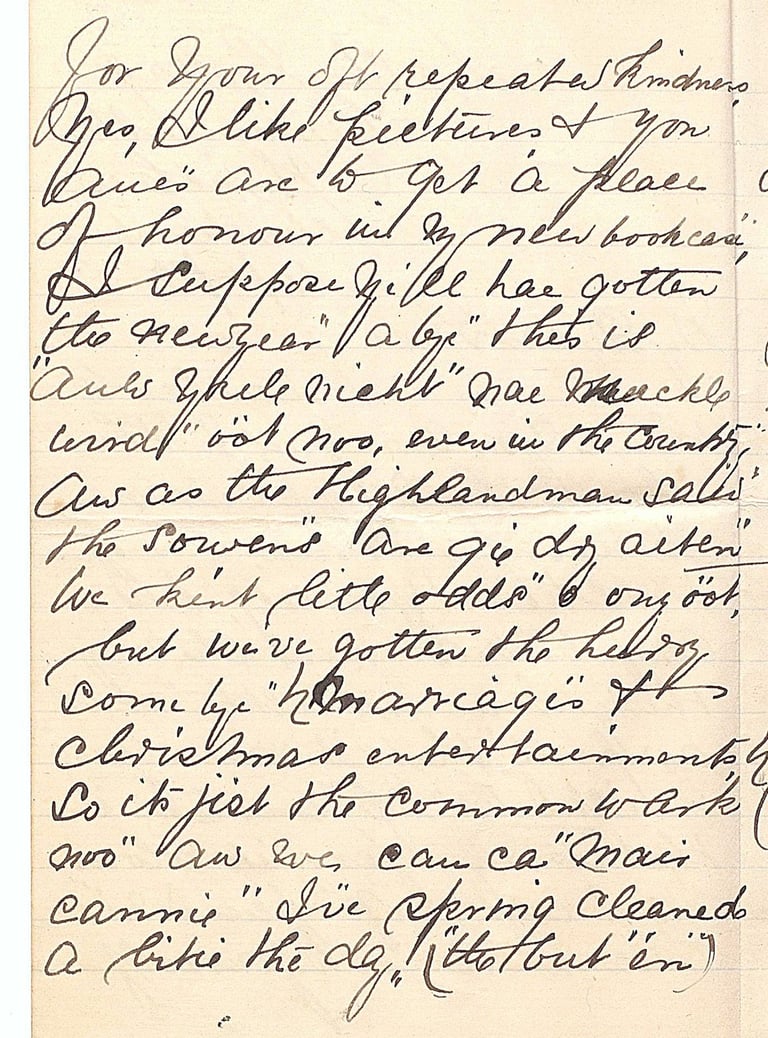 for your oft repeated kindness
Yes, I like pictures & you
are to get a place
of honour in my new bookcase,
I suppose ye'll hae gotten
the newyear" a bye" this is
"Auld Yule nicht" nae muckle
o'ot noo, even in the country,"
as the Highlandman said"
the sowen's are gie dry aiten"
We kent little odds" o ony o'ot,
but we've gotten the hurry
some bye" marriages &
Christmas entertainments
So its jist the common wark
noo" an we can ca" mair
cannie" I've spring cleaned
a bitie the day" ("the but "en")